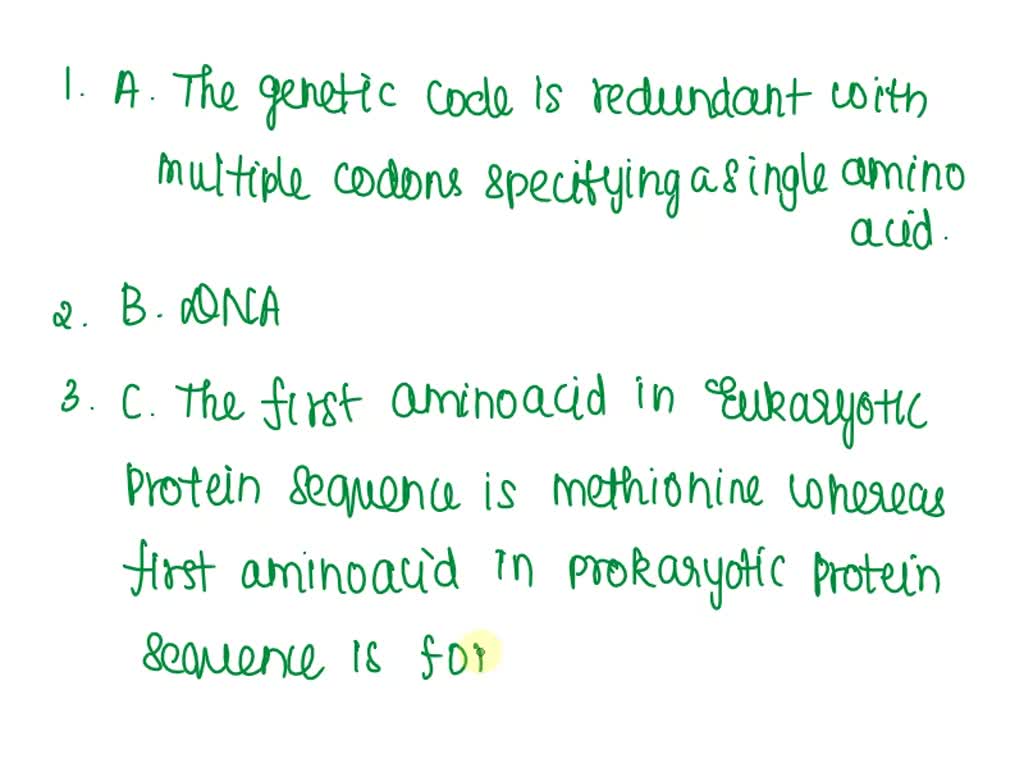 1. A. The genetic code is redundant with
multiple codons specifying a single amino
acid.
2. B. DNA
3. C. The first aminoacid in Eukaryotic
Protein sequence is methionine whereas
first aminoacid in prokaryotic protein
sequence is for